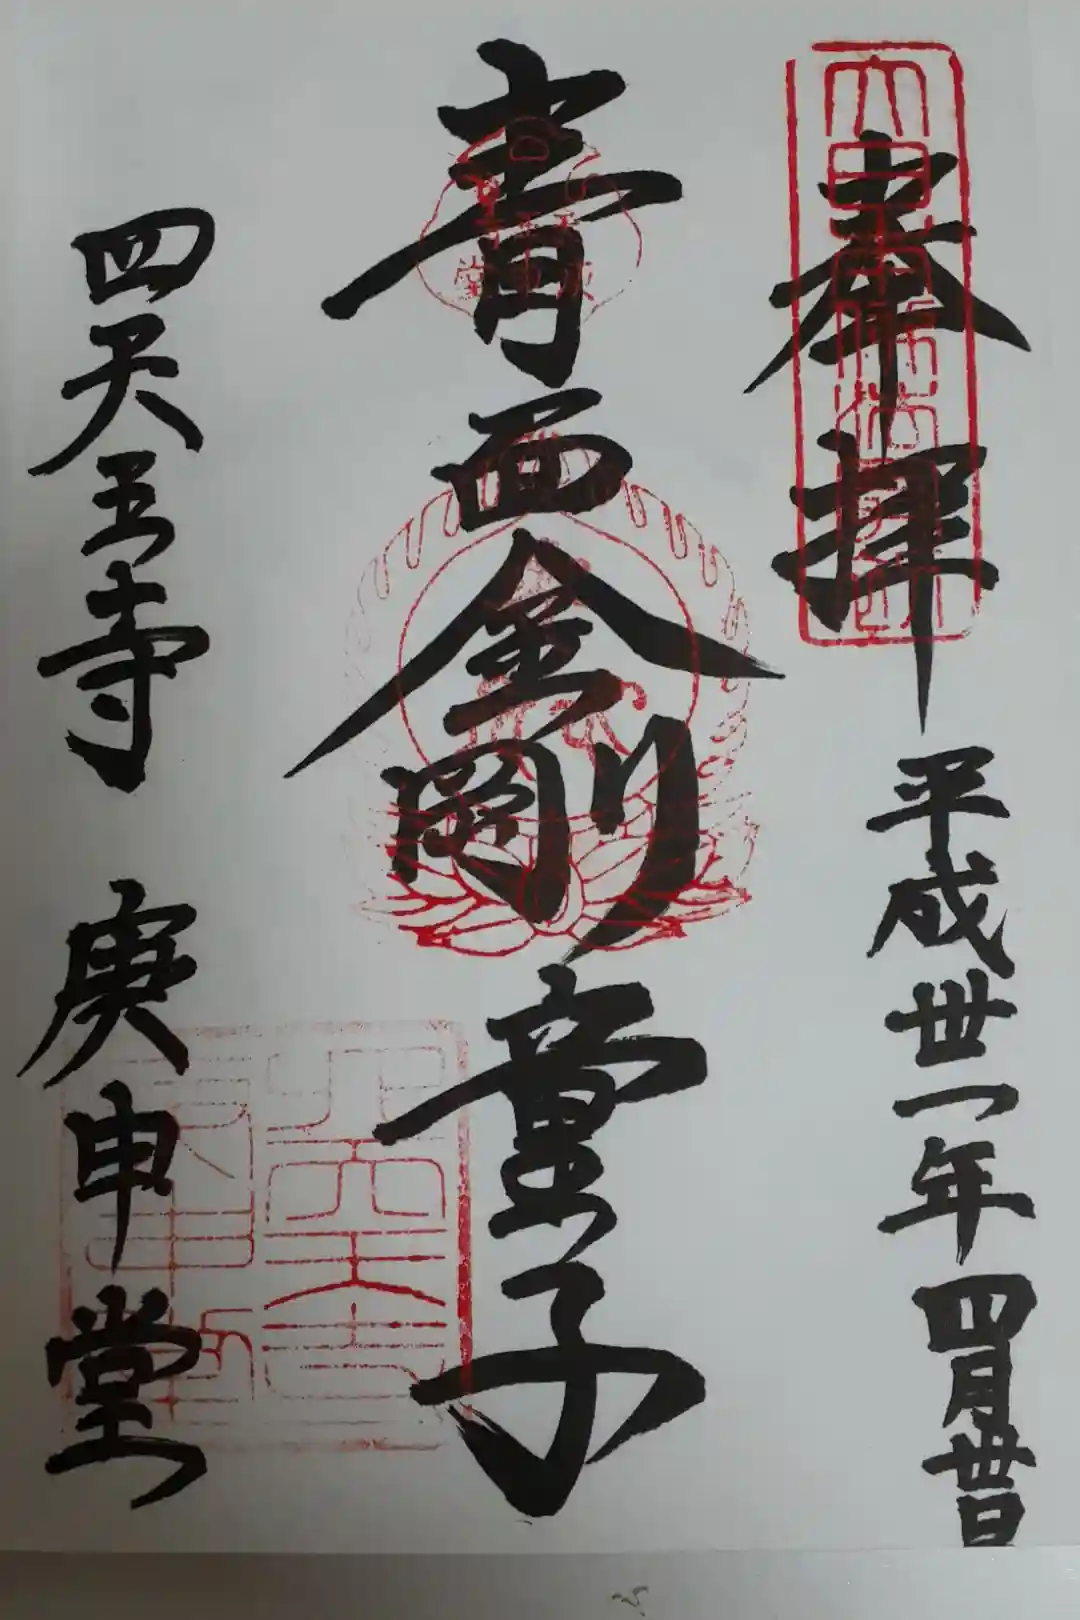 奉拝 平成卅一年四月卅日
青面金剛童子
四天王寺 庚申堂